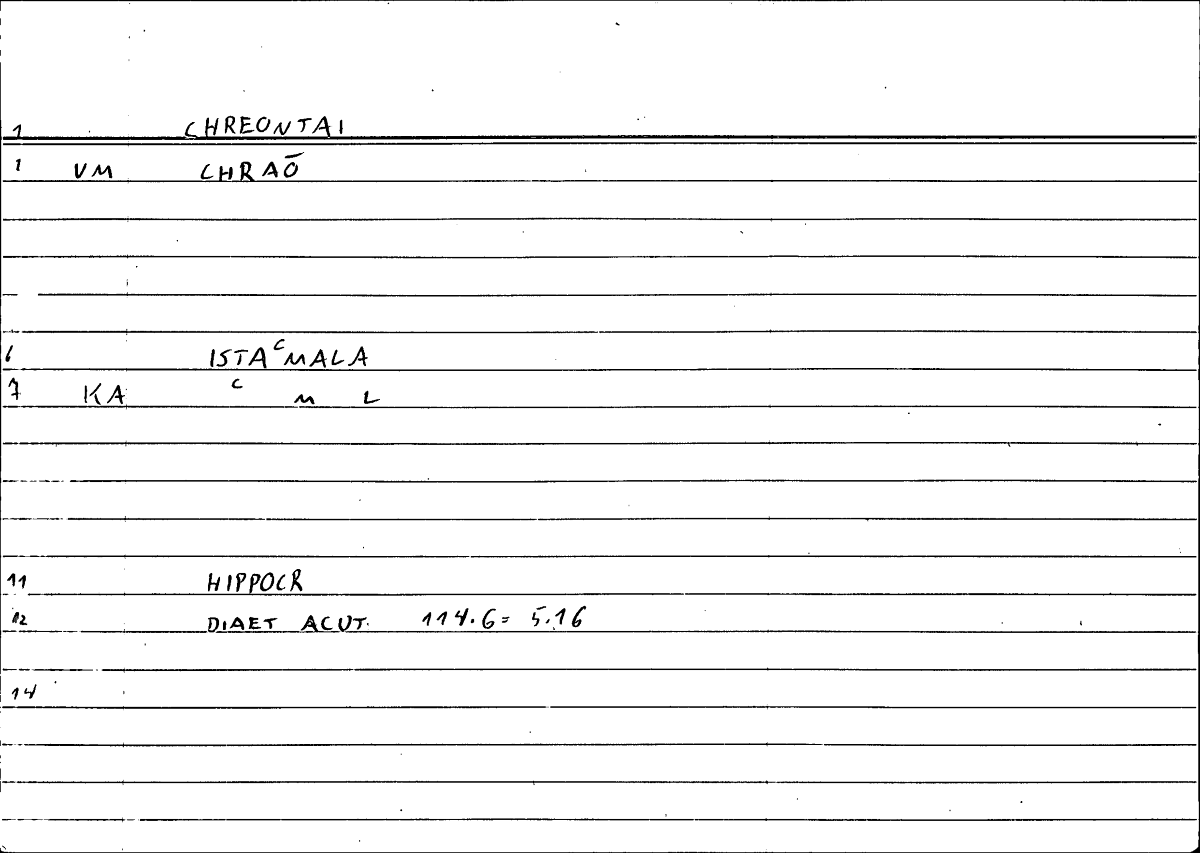 1 CHREONTAI
1 VM CHRAŌ
6 ISTAᶜMALA
7 KA ᶜ M L
11 HIPPOCR
12 DIAET ACUT. 114.6= 5.16
14